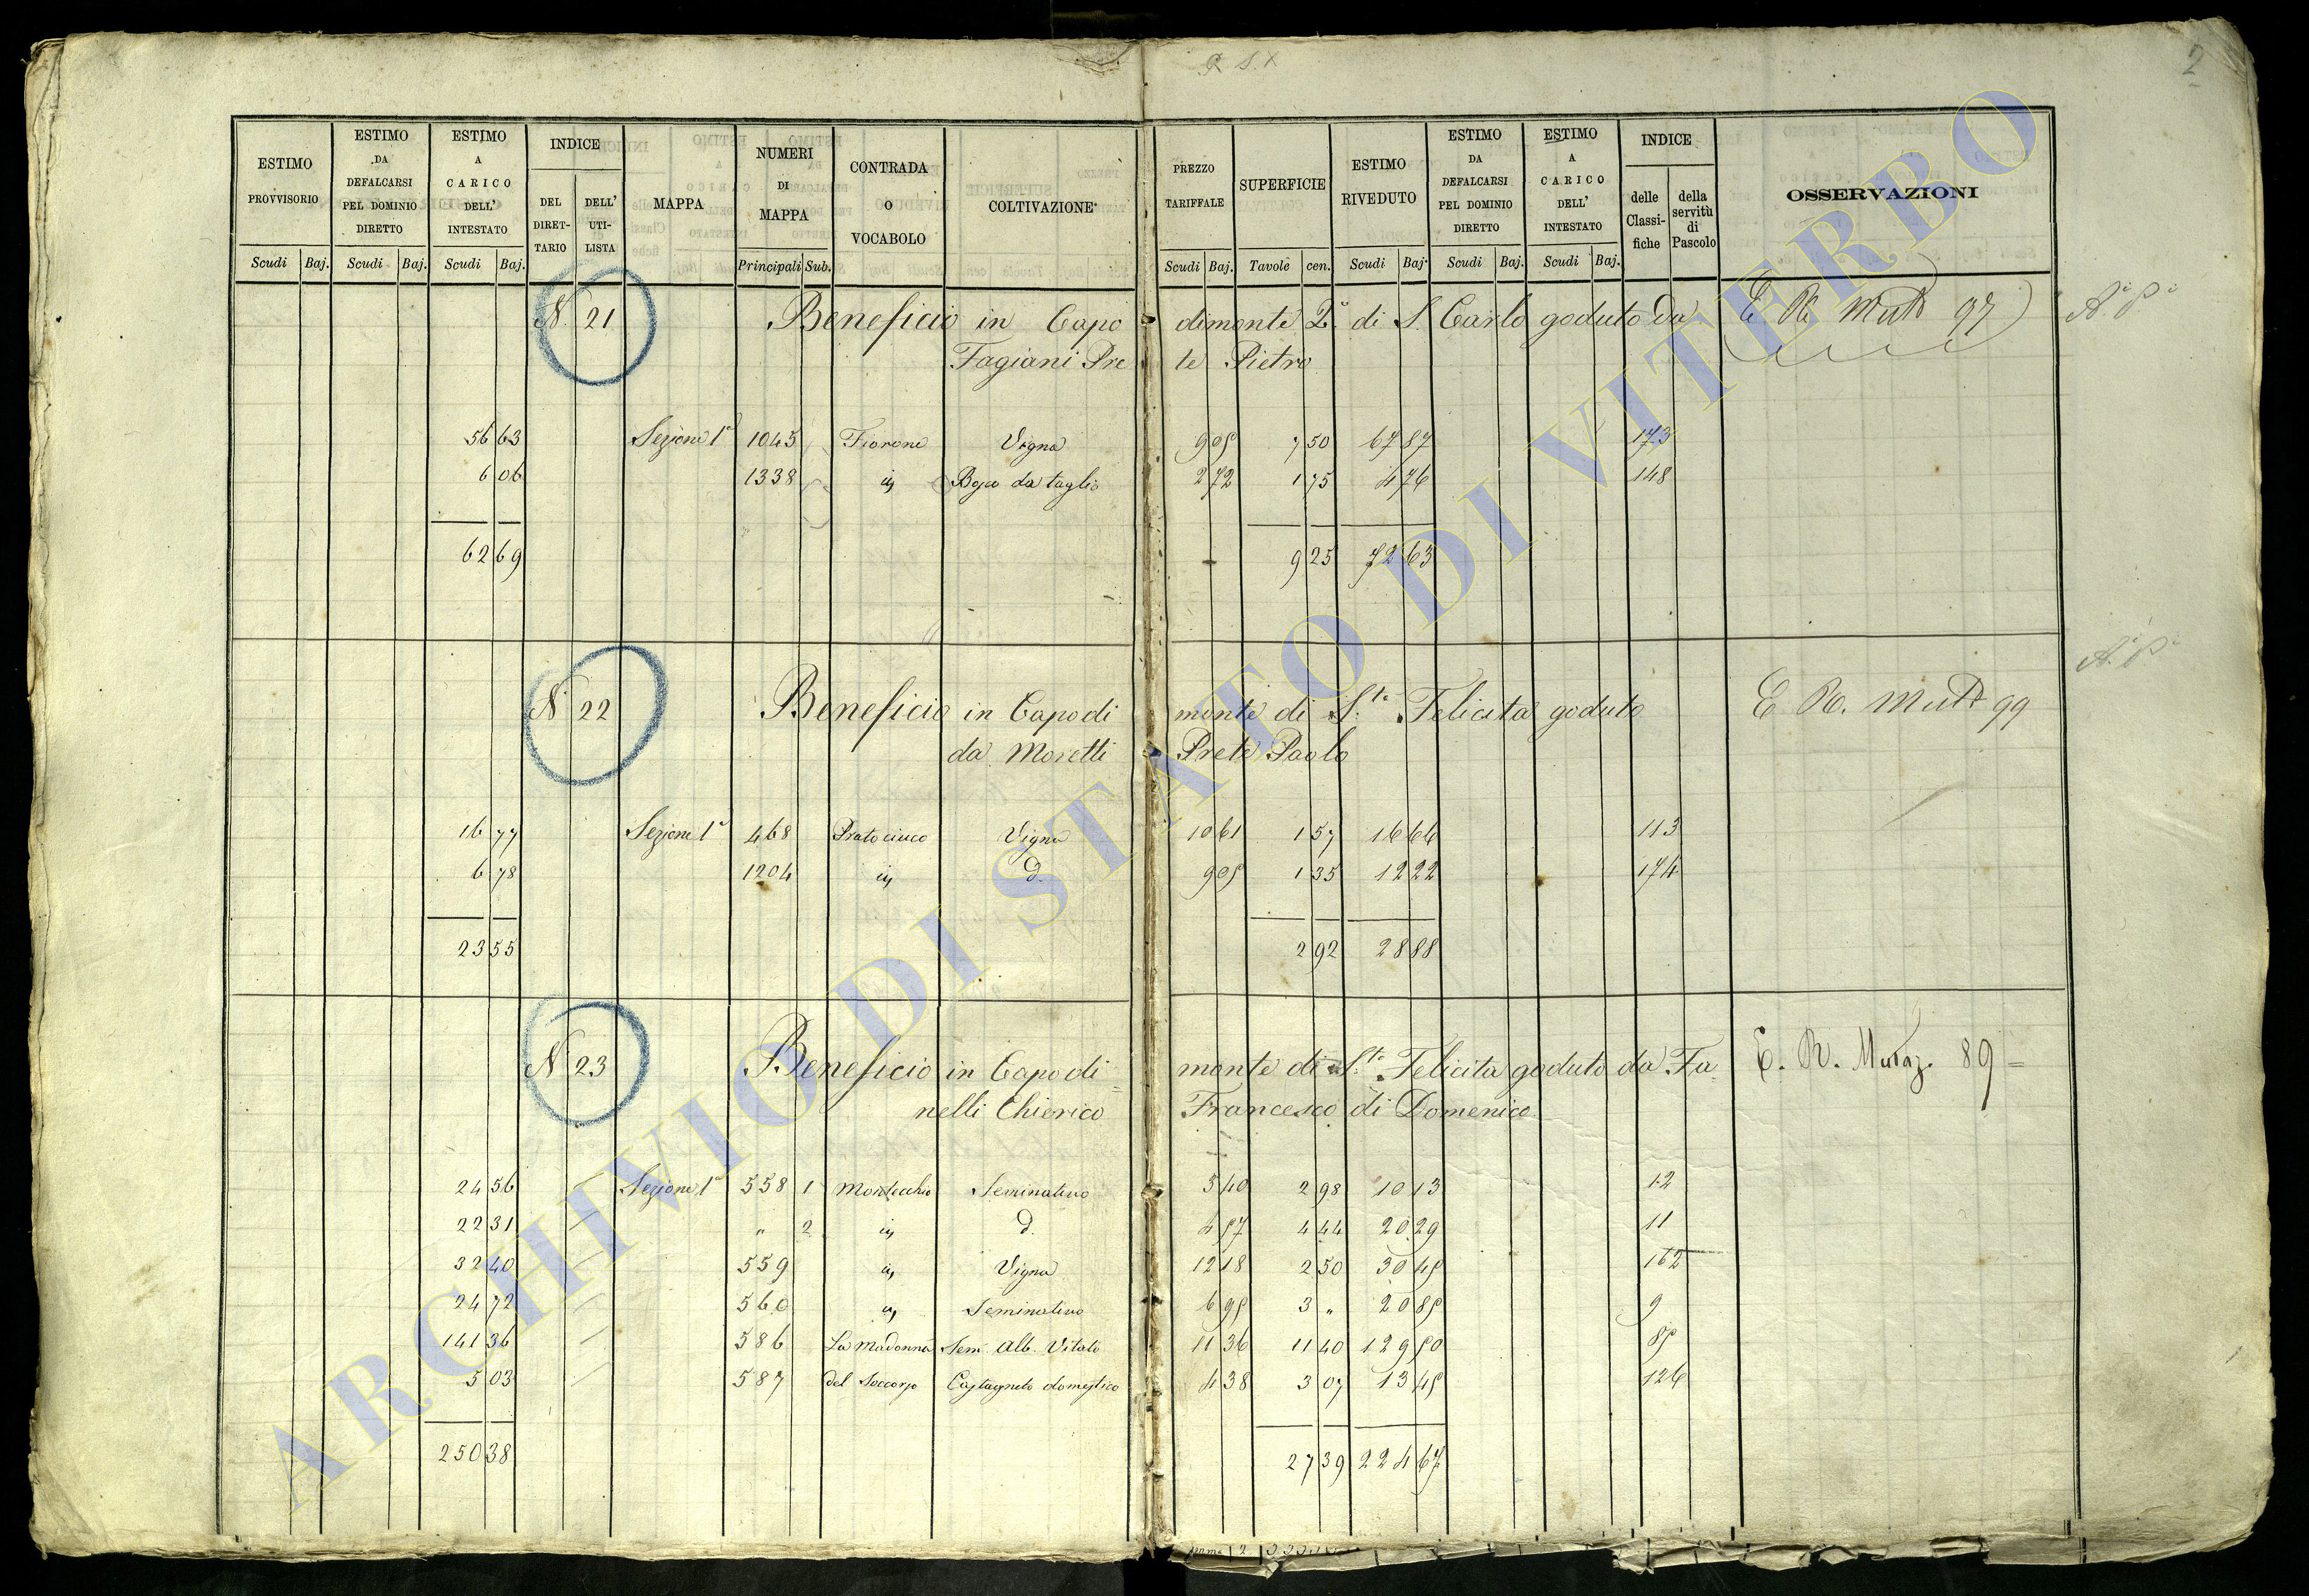 2
ESTIMO PROVVISORIO Scudi Baj.
ESTIMO DA DEFALCARSI PEL DOMINIO DIRETTO Scudi Baj.
ESTIMO A CARICO DELL' INTESTATO Scudi Baj.
INDICE DEL DIRETTARIO DELL' UTILISTA
MAPPA
NUMERI DI MAPPA Principali Sub.
CONTRADA O VOCABOLO
COLTIVAZIONE
PREZZO TARIFFALE Scudi Baj.
SUPERFICIE Tavole cen.
ESTIMO RIVEDUTO Scudi Baj.
ESTIMO DA DEFALCARSI PEL DOMINIO DIRETTO Scudi Baj.
ESTIMO A CARICO DELL' INTESTATO Scudi Baj.
INDICE delle Classifiche della servitù di Pascolo
OSSERVAZIONI
N. 21 Beneficio in Capo dimonte 2.° di S. Carlo goduto da E R Mut 97
Fagiani Pre te Pietro
56 63 Sezione 1ª 1045 Fiorone Vigna 9 05 7 50 67 87 173
6 06 1338 in Bosco da taglio 2 72 1 75 4 76 148
62 69 9 25 72 63
N 22 Beneficio in Capo di monte di S.ta Felicita goduto E R. Mut 99
da Moretti Prete Paolo
16 77 Sezione 1ª 468 Pratocinco Vigna 10 61 1 57 16 66 113
6 78 1204 in d. 9 05 1 35 12 22 174
23 55 2 92 28 88
N 23 Beneficio in Capo di monte di S.ta Felicita goduto da Fa E. R. Mutaz. 89 =
nelli Chierico Francesco di Domenico
24 56 Sezione 1ª 558 1 Montecchio Seminativo 3 40 2 98 10 13 12
22 31 " 2 in d. 4 57 4 44 20 29 11
32 40 559 in Vigna 12 18 2 50 30 45 162
24 72 560 in Seminativo 6 95 3 " 20 85 9
141 36 586 La Madonna Sem Alb. Vitato 11 36 11 40 129 50 85
5 03 587 del Soccorso Castagneto domestico 4 38 3 07 13 45 126
250 38 27 39 224 67
ARCHIVIO DI STATO DI VITERBO